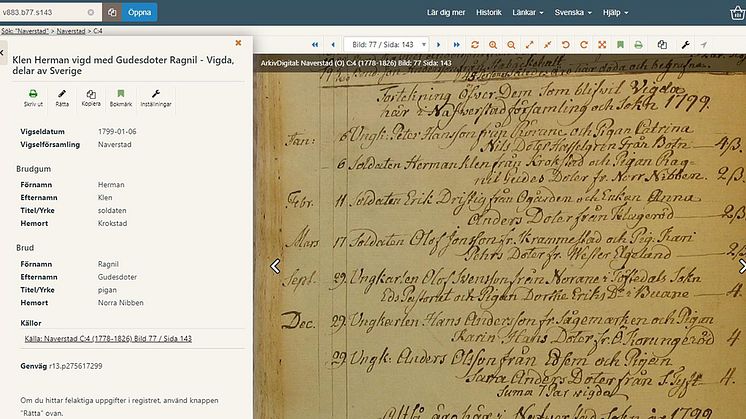 v883.b77.s143
Öppna
Lär dig mer Historik Länkar Svenska Hjälp
Sök: "Naverstad" > Naverstad > C:4
Bild: 77 / Sida: 143
Klen Herman vigd med Gudesdoter Ragnil - Vigda,
delar av Sverige
Skriv ut Rätta Kopiera Bokmärk Inställningar
Vigseldatum 1799-01-06
Vigselförsamling Naverstad
Brudgum
Förnamn Herman
Efternamn Klen
Titel/Yrke soldaten
Hemort Krokstad
Brud
Förnamn Ragnil
Efternamn Gudesdoter
Titel/Yrke pigan
Hemort Norra Nibben
Källor
Källa: Naverstad C:4 (1778-1826) Bild 77 / Sida 143
Genväg r13.p275617299
Om du hittar felaktiga uppgifter i registret, använd knappen
"Rätta" ovan.
ArkivDigital: Naverstad (O) C:4 (1778-1826) Bild: 77 Sida: 143
Förtekning öfver Dem som blifvit Vigda
här i Nafverstad församling och Sokn 1799.
Jan: 6 Ungk: Peter Hansson från Rörane och Pigan Catrina
Nils Doter Hasselgren från Botn 4/3.
6 Soldaten Herman Klen från Krokstad och Pigan Rag-
nil Gudes Doter fr. Norr Nibben. 2/3.
Febr. 11 Soldaten Erik Driftig från Ögården och Enkan Anna
Anders Doter från 2/3
Mars 17 Soldaten Olof Jonsson fr. Krammestad och Pig. Kari
Pehrs Doter fr. Wester Elgeland
Sept. 29. Ungkarlen Olof Svensson från Norane i Töftedals Sokn
och Pigan Dorthe Eriks Dr i 4.
Dec. 29. Ungkarlen Hans Andersson fr. och Pigan
Karin Hans Doter fr. Ö 4
29. Ungk: Anders Olsson från och Pigan
Sara Anders Doter från 4
Suma 7 Par vigda
1799